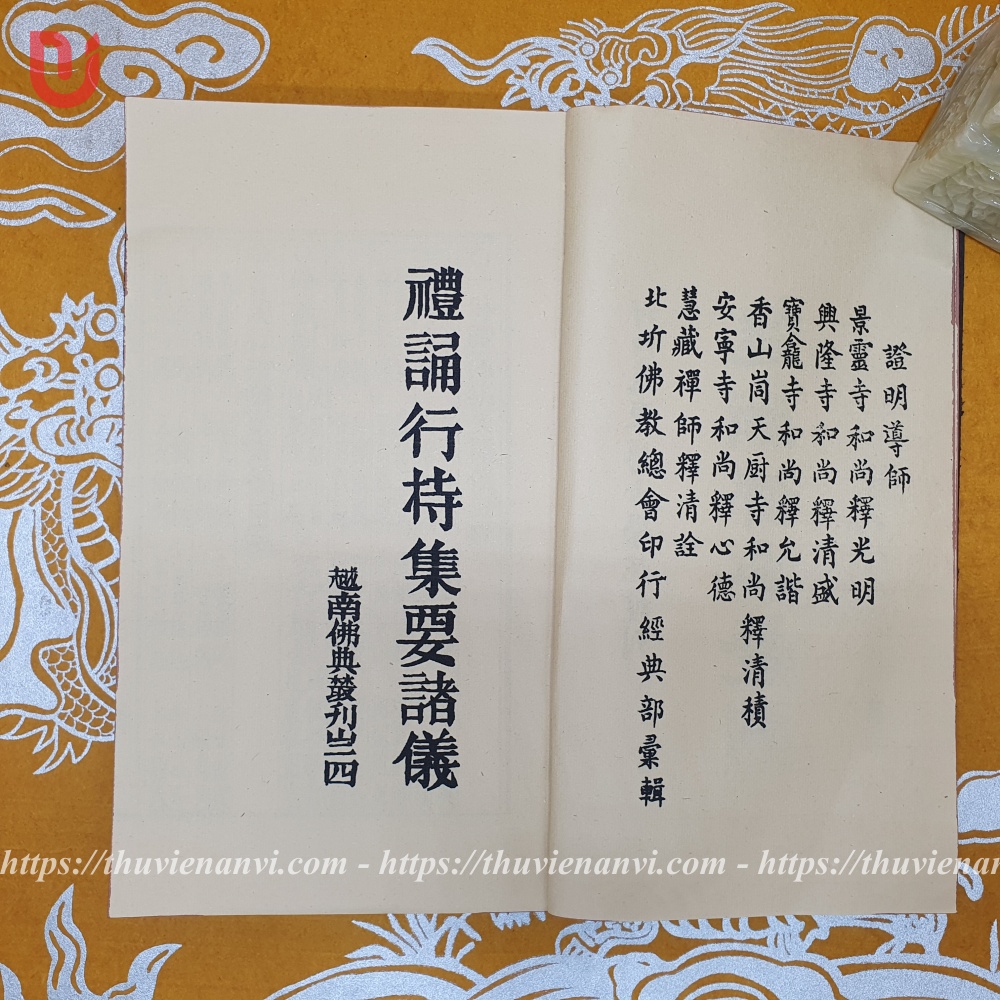 證明導師
景靈寺和尚釋光明
興隆寺和尚釋清盛
寶龕寺和尚釋允諧
香山峝天厨寺和尚釋清積
安寧寺和尚釋心德
慧藏禪師釋清詮
北圻佛教總會印行經典部彙輯
禮誦行持集要諸儀
越南佛典叢刊之四
https://thuvienanvi.com - https://thuvienanvi.com - https://thuvienan